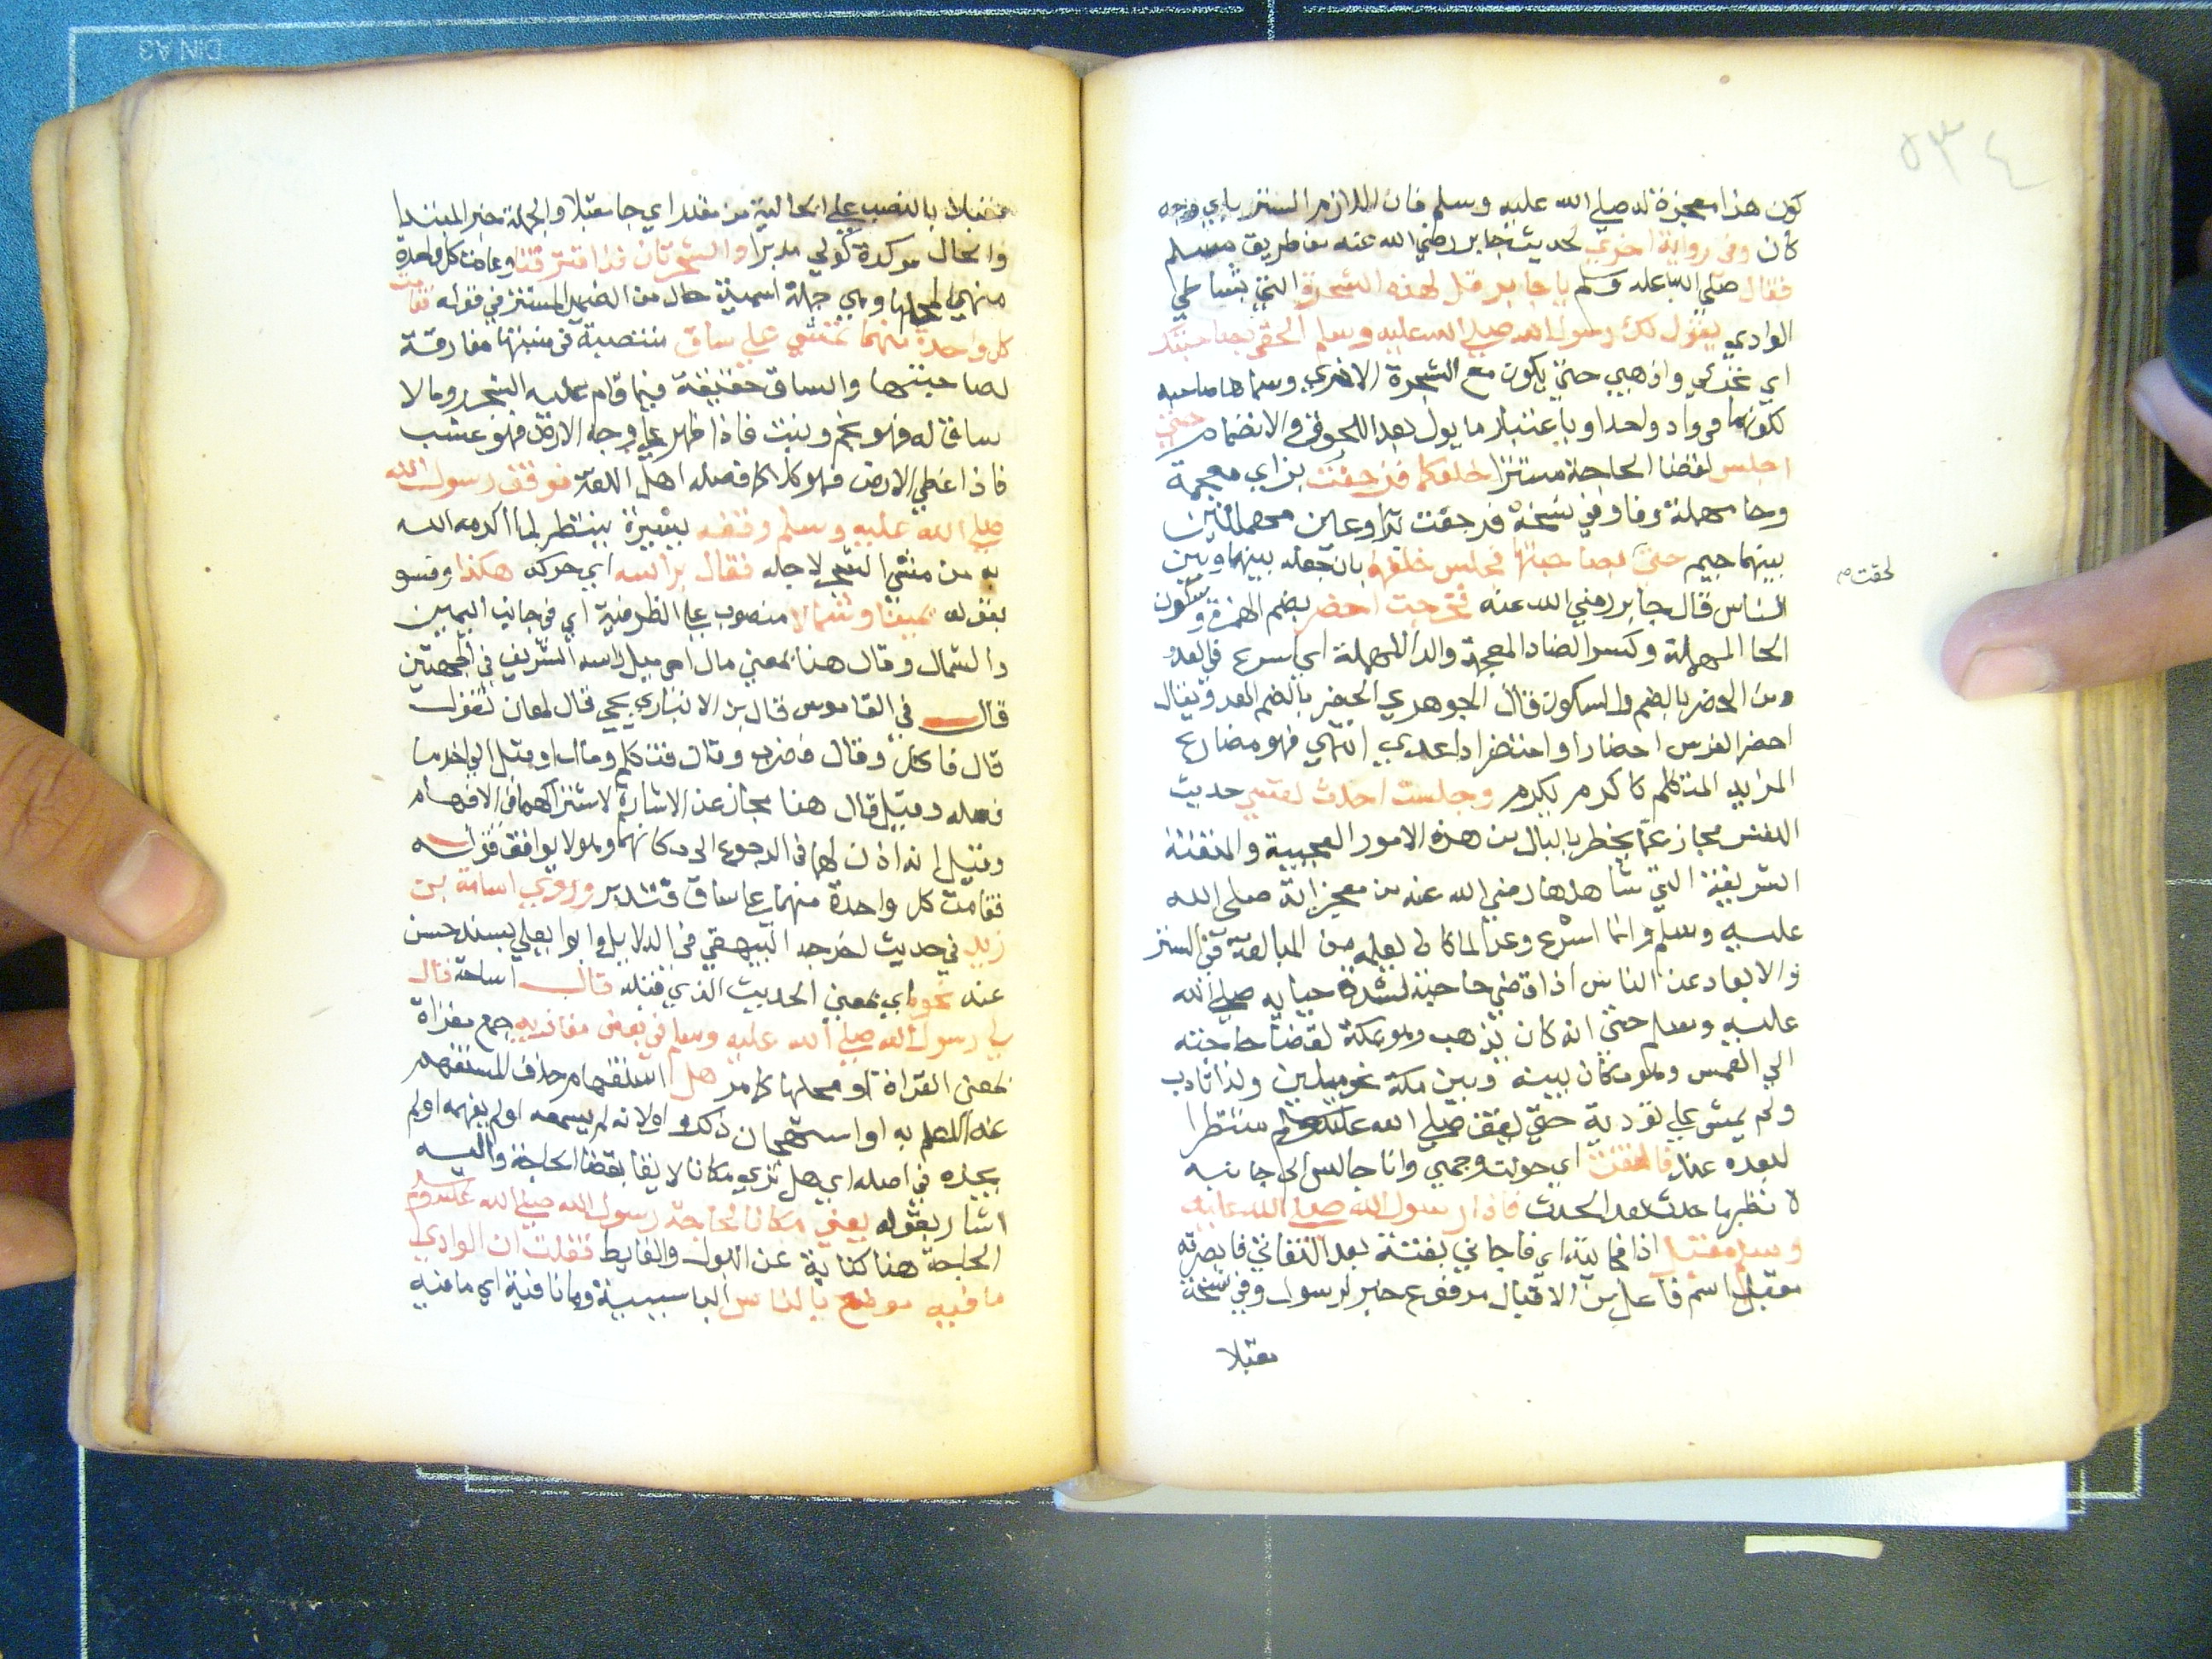 ٥٣٤
كون هذا معجزة له صلي الله عليه وسلم فان اللازم الستر باي وجه
كان وفي رواية اخري لحديث جابر رضي الله عنه من طريق مسلم
فقال صلي الله عليه وسلم يا جابر قل لهذه الشجرة التي بشاطي
الوادي يقول لك رسول الله صلي الله عليه وسلم الحقي بصاحبتك
اي تحركي واذهبي حتي يكون مع الشجرة الاخري وسماها صاحبه
لكونهما في واد واحد او باعتبار ما يول بعد اللحوق في الانضمام حتي
اجلس لقضا الحاجة مستترا خلفكما فزحفت بزاي معجمة
وحا مهملة وفا وفي نسخة فرجعت برا وعين مهملتين
بينهما جيم حتي بصاحبتها فجلس خلفهما بان جعله بينهما وبين
لحقت صح
الناس قال جابر رضي الله عنه فخرجت احضر بضم الهمزة وسكون
الحا المهملة وكسر الضاد المعجمة والدا المهملة اي اسرع في العدو
ومن الحضر بالضم والسكون قال الجوهري الحضر بالضم العدو يقال
احضر الفرس احضارا واحتضر اذا عدي انتهي فهو مضارع
المزيد المتكلم كاكرم يكرم وجلست احدث نفسي حديث
النفس مجاز عما يخطر بالبال من هذه الامور العجيبة والمنقبة
الشريفة التي شاهدها رضي الله عنه من معجزاته صلي الله
عليه وسلم وانما اسرع وعدا لما كان يعلمه من المبالغة في الستر
والابعاد عن الناس اذا قضي حاجته لشدة حيايه صلي الله
عليه وسلم حتي انه كان يذهب وهو بمكة لقضا حاجته
الي المغمس وهو مكان بينه وبين مكة نحو ميلين ولذا تادب
ولم يمش علي تؤدية حتي يقف صلي الله عليه وسلم منتظرا
لبعده عنه فالتفت اي حولت وجهي وانا جالس الي جانبه
لانظر ما حدث بعد الحدث فاذا رسول الله صلي الله عليه
وسلم مقبل اذا فجائية اي فاجاني بغتة بعد التفاتي فابصرته
مقبل اسم فاعل من الاقبال مرفوع خبر لرسول وفي نسخة
مقبلا
مقبلا بالنصب علي الحالية من مقدر اي جا مقبلا والجملة خبر المبتدا
والحال موكدة كولي مدبرا والشجرتان قد افترقتا وعادت كل واحدة
منهما لمحلها وهي جملة اسمية حال من الضمير المستتر في قوله فقامت
كل واحدة منهما تمشي علي ساق منتصبة في منبتها مفارقة
لصاحبتها والساق حقيقة فيما قام عليه الشجر وما لا
ساق له فهو نجم ونبت فاذا ظهر علي وجه الارض فهو عشب
فاذا غطي الارض فهو كلا كما فصله اهل اللغة فوقف رسول الله
صلي الله عليه وسلم وقفة يسيرة ينتظر لما اكرمه الله
به من مشي الشجر لاجله فقال براسه اي حركه هكذا وفسره
بقوله يمينا وشمالا منصوب علي الظرفية اي في جانب اليمين
والشمال وقال هنا بمعني مال اي ميل راسه الشريف في الجهتين
قال في القاموس قال ابن الانباري يجي قال لمعان تقول
قال فاكل وقال فضرب وقال فتكلم ومال وقيل الي اخر ما
فصله وقيل قال هنا مجاز عن الاشارة لاشتراكهما في الافهام
وقيل انه اذن لهما في الرجوع الي مكانهما وهو لا يوافق قوله
فقامت كل واحدة منهما علي ساق فتدبر وروي اسامة بن
زيد في حديث اخرجه البيهقي في الدلايل وابو يعلي بسند حسن
عنه نحوه اي بمعني الحديث الذي قبله قال اسامة قال
لي رسول الله صلي الله عليه وسلم في بعض مغازيه جمع مغزاة
بمعني الغزاة او محلها كما مر هل استفهام حذف المستفهم
عنه للعلم به او استهجان ذكره او لانه لم يسمعه او لم يفهمه او لم
يجده في اصله اي هل تري مكانا لايقا بقضا الحاجة واليه
اشار بقوله يعني مكانا لحاجة رسول الله صلي الله عليه وسلم
الحاجة هنا كناية عن البول والغايط فقلت ان الوادي
ما فيه موضع بالناس البا سببية وما نافية اي ما فيه